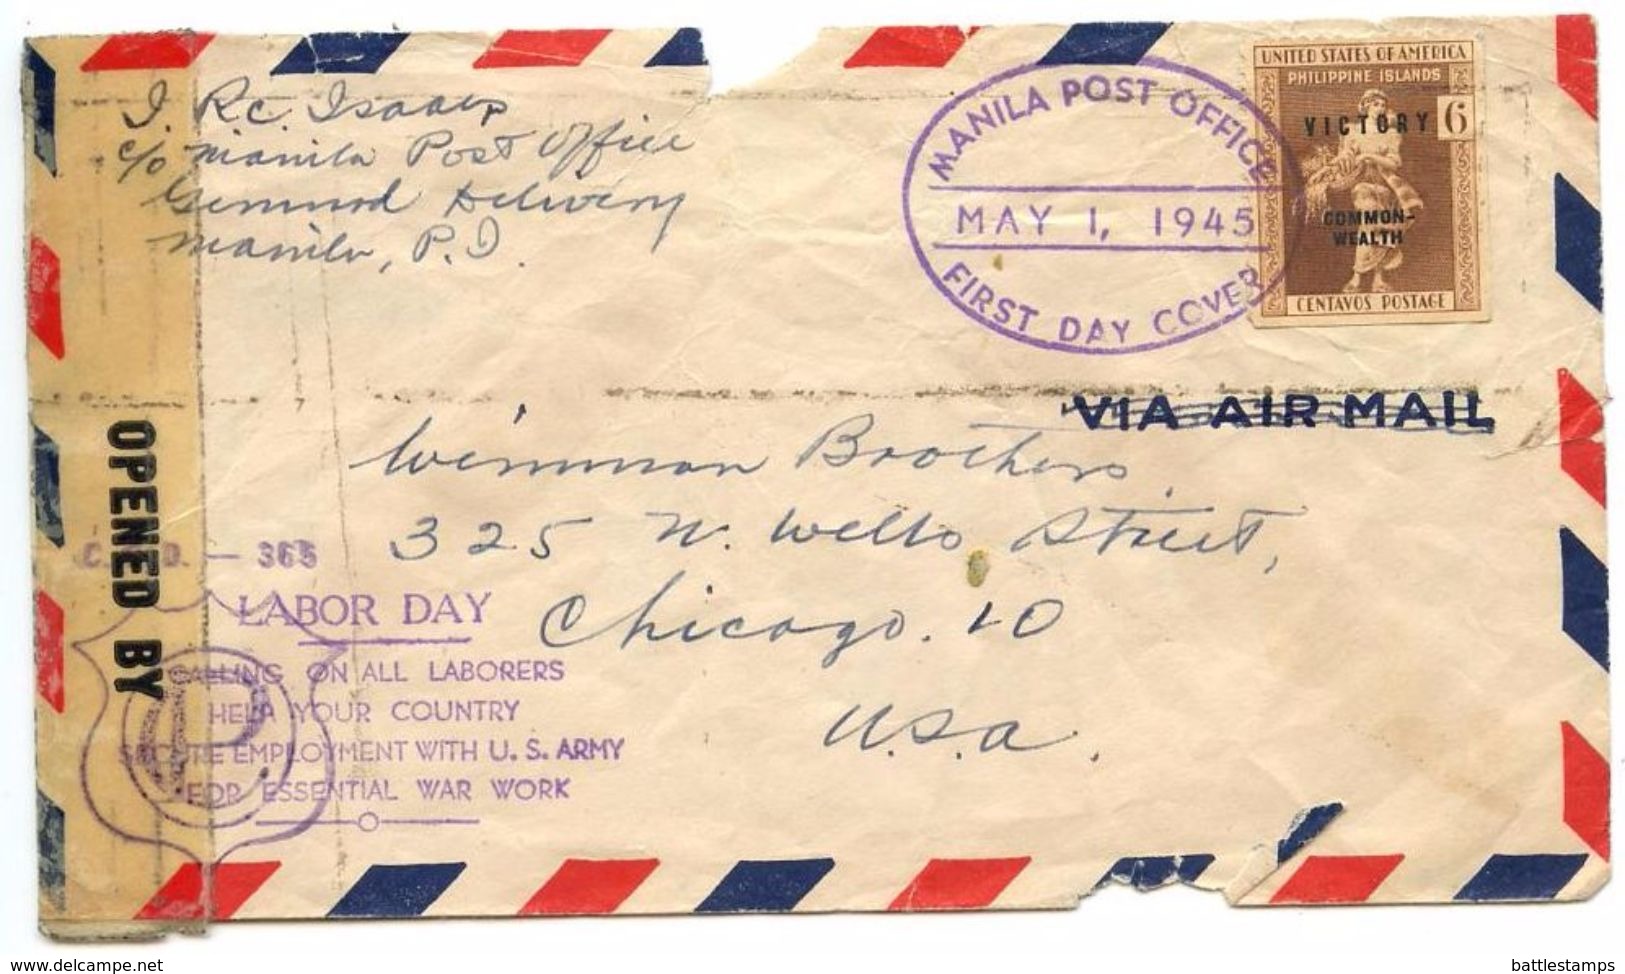 J. Rc. Isaacs
c/o Manila Post Office
General Delivery
Manila, P.I.
MANILA POST OFFICE
MAY 1, 1945
FIRST DAY COVER
UNITED STATES OF AMERICA
PHILIPPINE ISLANDS
VICTORY 6
COMMON-
WEALTH
CENTAVOS POSTAGE
VIA AIR MAIL
Brothers,
325 W. Wells Street,
Chicago. 10
U.S.A.
OPENED BY
C. D. – 365
LABOR DAY
CALLING ON ALL LABORERS
HELP YOUR COUNTRY
SECURE EMPLOYMENT WITH U. S. ARMY
FOR ESSENTIAL WAR WORK
www.delcampe.net
battlestamps